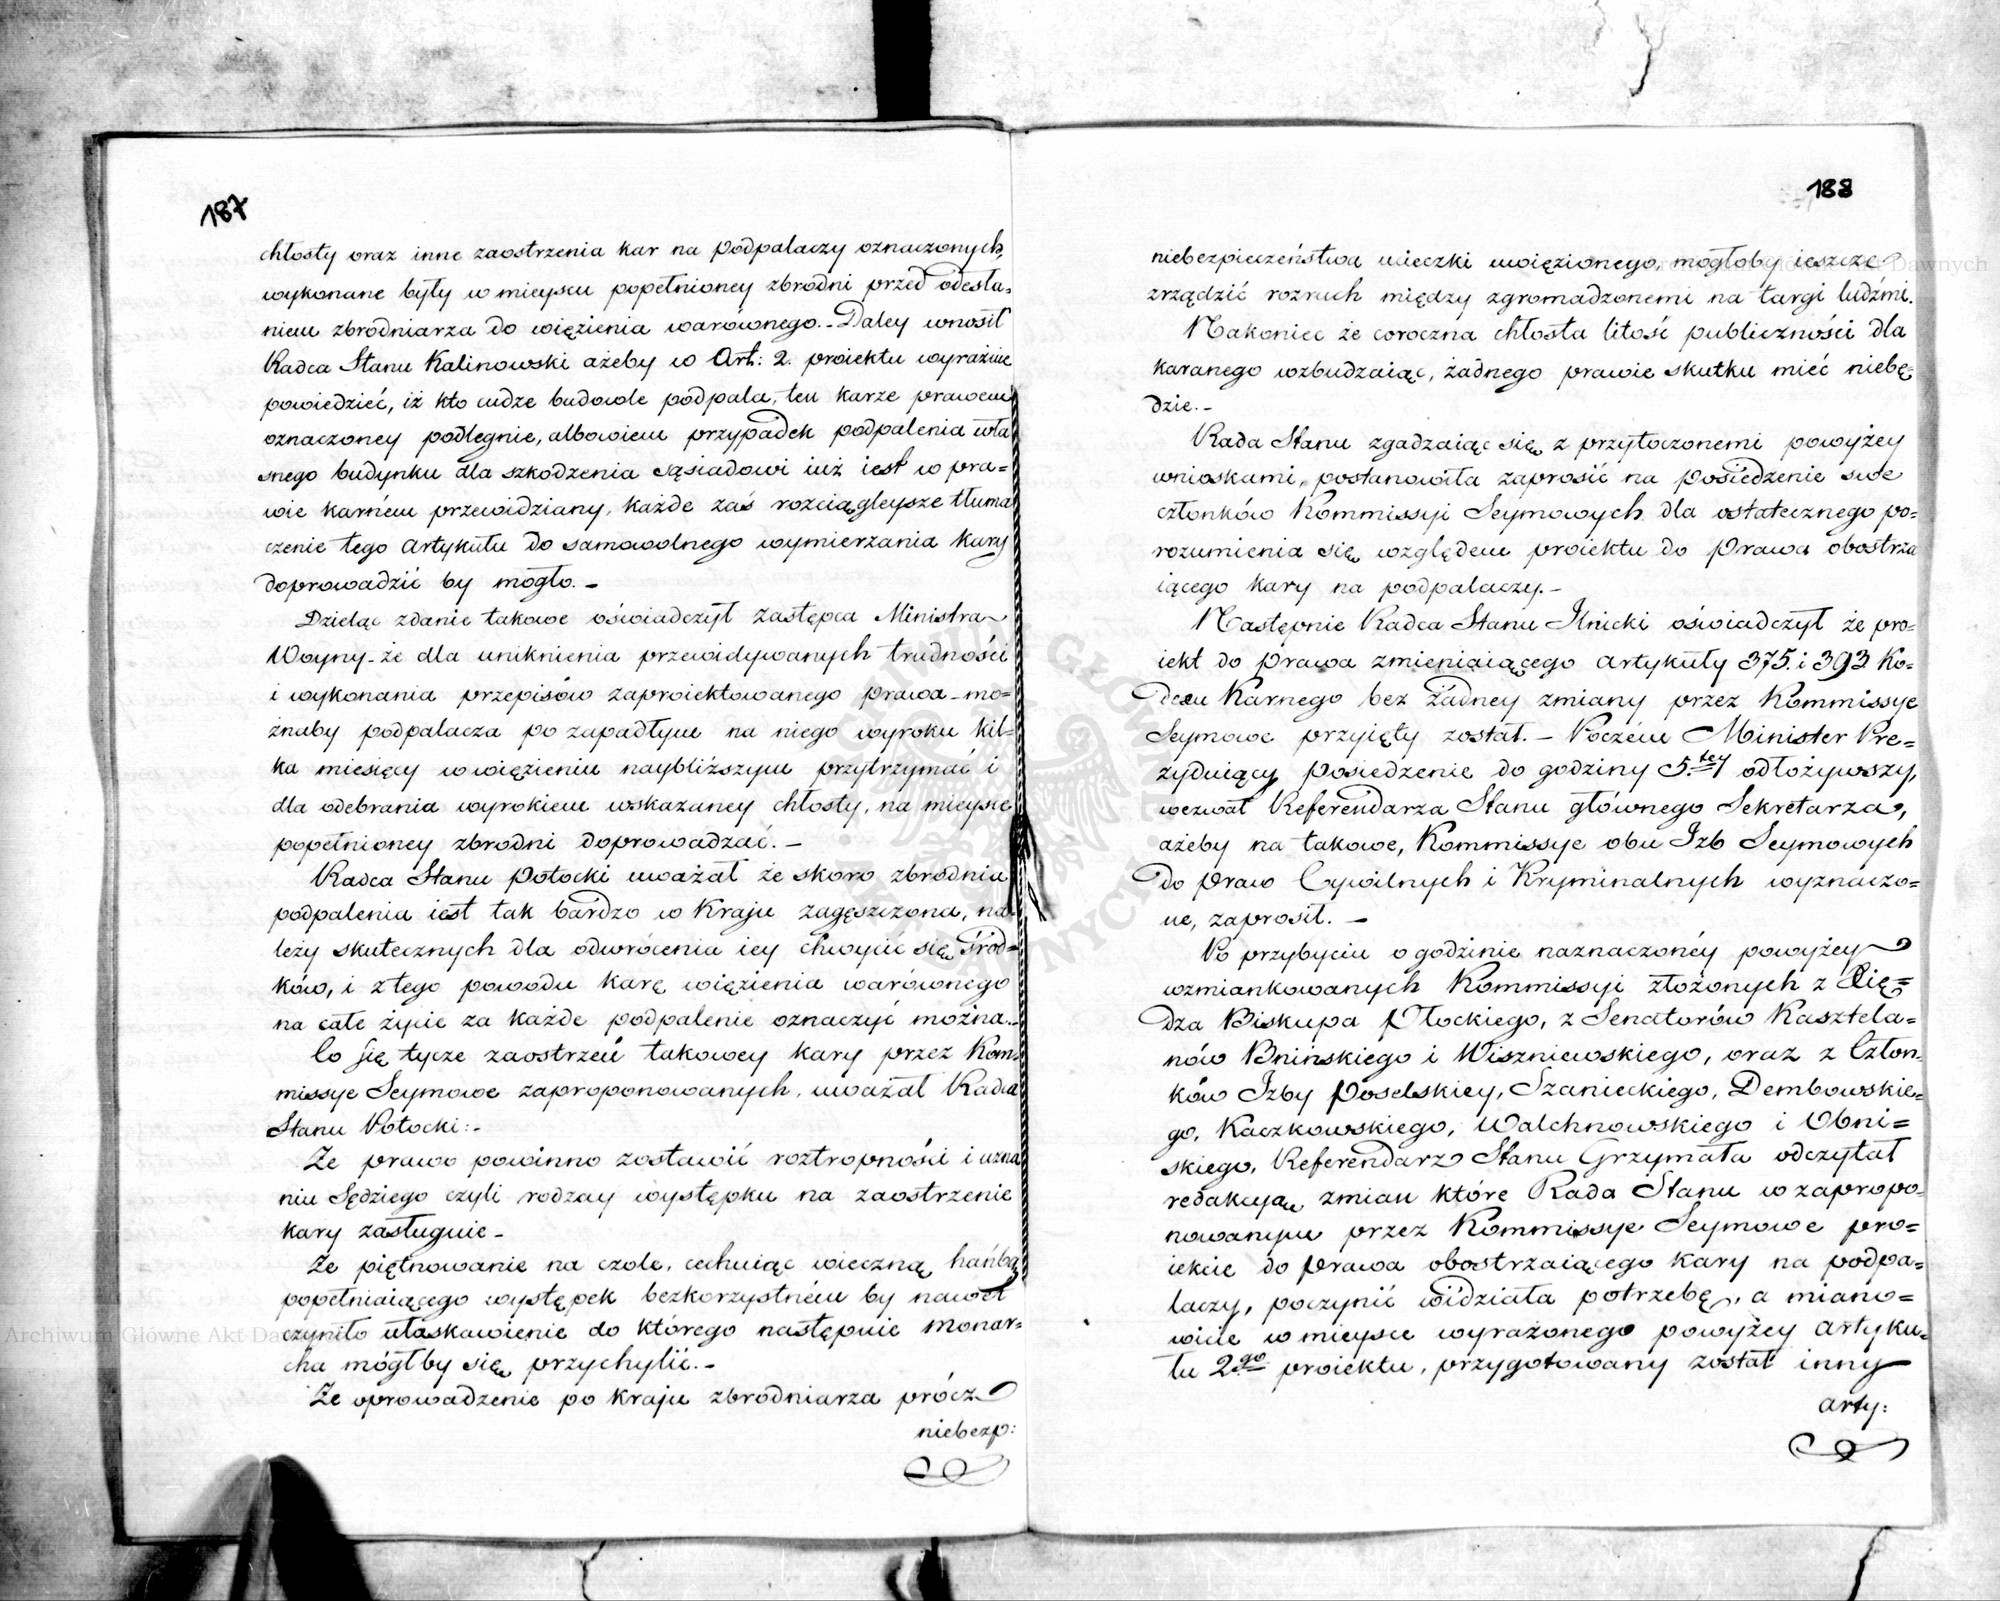 187
chłosty oraz inne zaostrzenia kar na podpalaczy oznaczonych,
wykonane były w mieyscu popełnioney zbrodni przed odesła=
niem zbrodniarza do więzienia warównego. - Daley wnosił
Radca Stanu Kalinowski ażeby w Art: 2. proiektu wyraźnie
powiedzieć, iż kto cudze budowle podpala, ten karze prawem
oznaczoney podlegnie, albowiem przypadek podpalenia wła
snego budynku dla szkodzenia sąsiadowi iuż iest w pra=
wie karném przewidziany, każde zaś rozciągleysze tłuma
czenie tego artykułu do samowolnego wymierzania kary
doprowadzić by mogło. -
Dzieląc zdanie takowe oświadczył Zastępca Ministra
Woyny - że dla uniknienia przewidywanych trudności
i wykonania przepisów zaproiektowanego prawa - mo=
żnaby podpalacza po zapadłym na niego wyroku kil=
ka miesięcy w więzieniu naybliższym przytrzymać i
dla odebrania wyrokiem wskazaney chłosty, na mieysce
popełnioney zbrodni doprowadzać. -
Radca Stanu Potocki uważał że skoro zbrodnia
podpalenia iest tak bardzo w Kraju zagęszczona, na
leży skutecznych dla odwrócenia iey chwycić się środ=
ków, i z tego powodu karę więzienia warównego
na całe życie za każde podpalenie oznaczyć można. -
Co się tycze zaostrzeń takowey kary przez Kom=
missye Seymowe zaproponowanych, uważał Radca
Stanu Potocki: -
Że prawo powinno zostawić roztropności i uzna
niu Sędziego czyli rodzay występku na zaostrzenie
kary zasługuie -
Że piętnowanie na czole, cechuiąc wieczną hańbą
popełniaiącego występek bezkorzystném by nawet
czyniło ułaskawienie do którego następnie Monar=
cha mógłby się przychylić. -
Że oprowadzenie po kraju zbrodniarza prócz
niebezp:
188
niebezpieczeństwa ucieczki uwięzionego, mogłoby ieszcze
zrządzić rozruch między zgromadzonemi na targi ludźmi.
Nakoniec że coroczna chłosta litość publiczności dla
karanego wzbudzaiąc, żadnego prawie skutku mieć niebę=
dzie. -
Rada Stanu zgadzaiąc się z przytoczonemi powyżey
wnioskami, postanowiła zaprosić na posiedzenie swe
członków Kommissyi Seymowych dla ostatecznego po=
rozumienia się względem proiektu do prawa obostrza
iącego kary na podpalaczy. -
Następnie Radca Stanu Ilnicki oświadczył że pro=
iekt do prawa zmieniaiącego artykuły 375. i 393 Ko=
dexu Karnego bez żadney zmiany przez Kommissye
Seymowe przyięty został. - Poczém Minister Pre=
zyduiący posiedzenie do godziny 5.tey odłożywszy,
wezwał Referendarza Stanu głównego Sekretarza,
ażeby na takowe, Kommissye obu Izb Seymowych
do praw Cywilnych i Kryminalnych wyznaczo=
ne, zaprosił. -
Po przybyciu o godzinie naznaczonéy powyżey
wzmiankowanych Kommissyi złożonych z Xię=
dza Biskupa Płockiego, z Senatorów Kasztela=
nów Bnińskiego i Wiszniewskiego, oraz z Człon=
ków Izby Poselskiey, Szanieckiego, Dembowskie=
go, Kaczkowskiego, Walchnowskiego i Obni=
skiego, Referendarz Stanu Grzymała odczytał
redakcyą zmian które Rada Stanu w zapropo=
nowanym przez Kommissye Seymowe pro=
iekcie do prawa obostrzaiącego kary na podpa=
laczy, poczynić widziała potrzebę, a miano=
wicie w mieysce wyrażonego powyżey artyku=
łu 2.go proiektu, przygotowany został inny
arty: